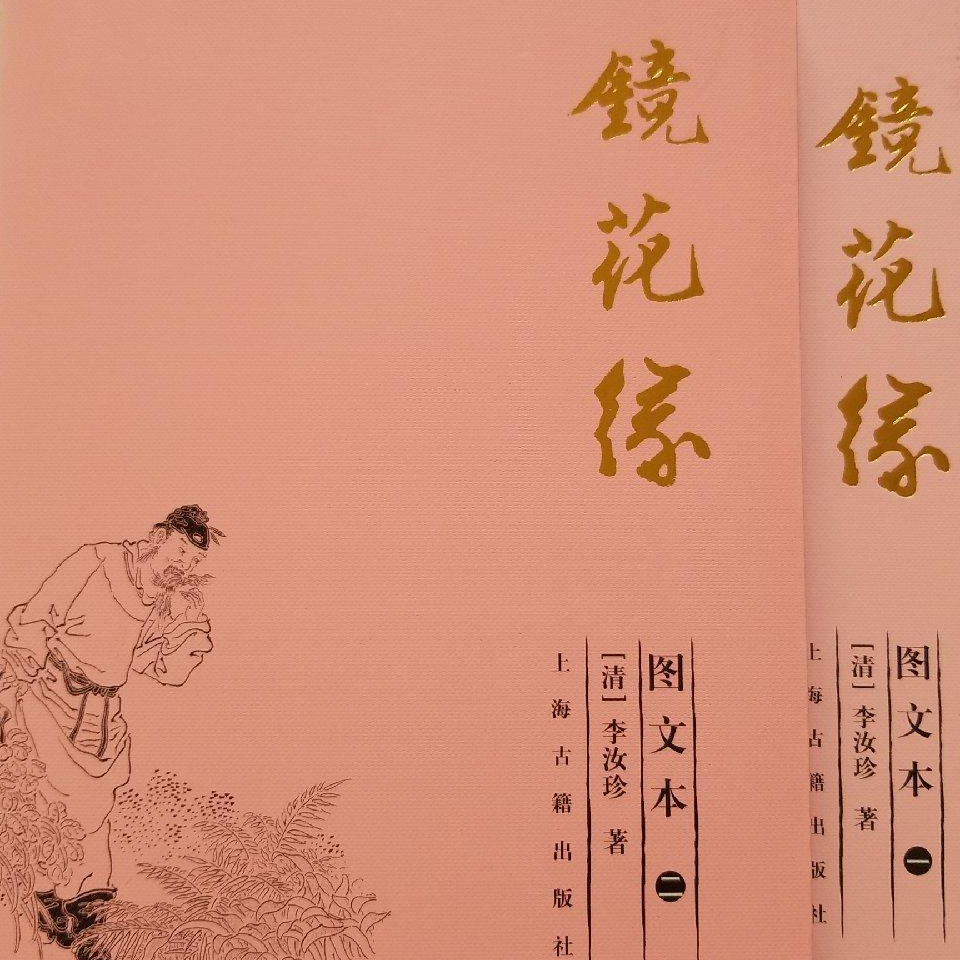 鏡花緣
图文本 二
[清]李汝珍 著
上海古籍出版社
鏡花緣
图文本 一
[清]李汝珍 著
上海古籍出版社